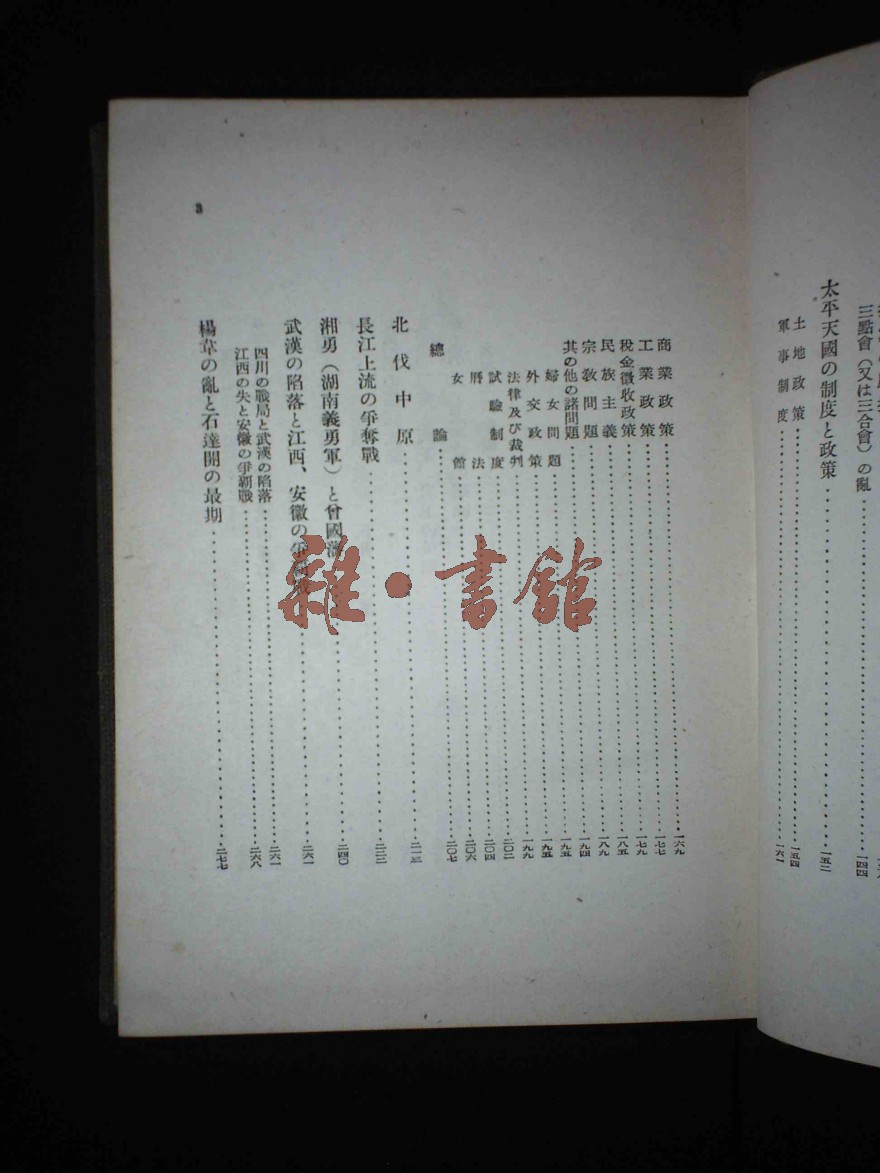 三點會(又は三合會)の亂……一四四
太平天國の制度と政策……一五二
土地政策……一五四
軍事制度……一六一
商業政策……一六九
工業政策……一七七
税金徵收政策……一七九
民族主義……一八五
宗教問題……一八九
其の他の諸問題……一九四
婦女問題……一九五
外交政策……一九五
法律及び裁判……一九九
試驗制度……二〇二
曆法……二〇四
女館……二〇六
總論……二〇七
北伐中原……二一三
長江上流の爭奪戰……二三三
湘勇(湖南義勇軍)と曾國藩……二四〇
武漢の陷落と江西、安徽の爭覇戰……二六一
四川の戰局と武漢の陷落……二六一
江西の失と安徽の爭覇戰……二六八
楊韋の亂と石達開の最期……二七七
3
雜·書館